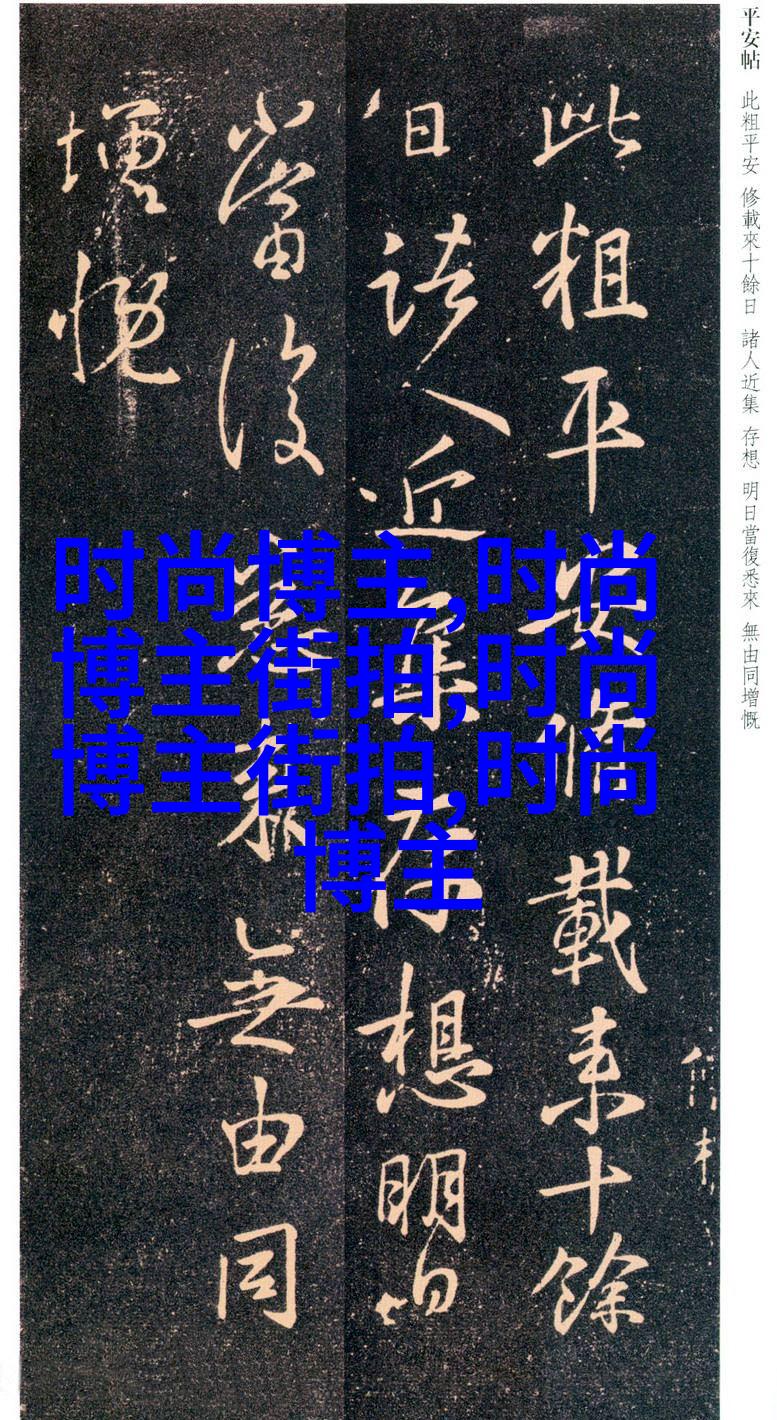 平安帖 此粗平安 修載來十餘日 諸人近集 存想 明日當復悉來 無由同增慨
此粗平安修載来十餘
日諸人近集存想明日
當復悉来無由同
增慨
时尚博主,时尚
博主街拍,时尚
博主街拍,时尚
博主